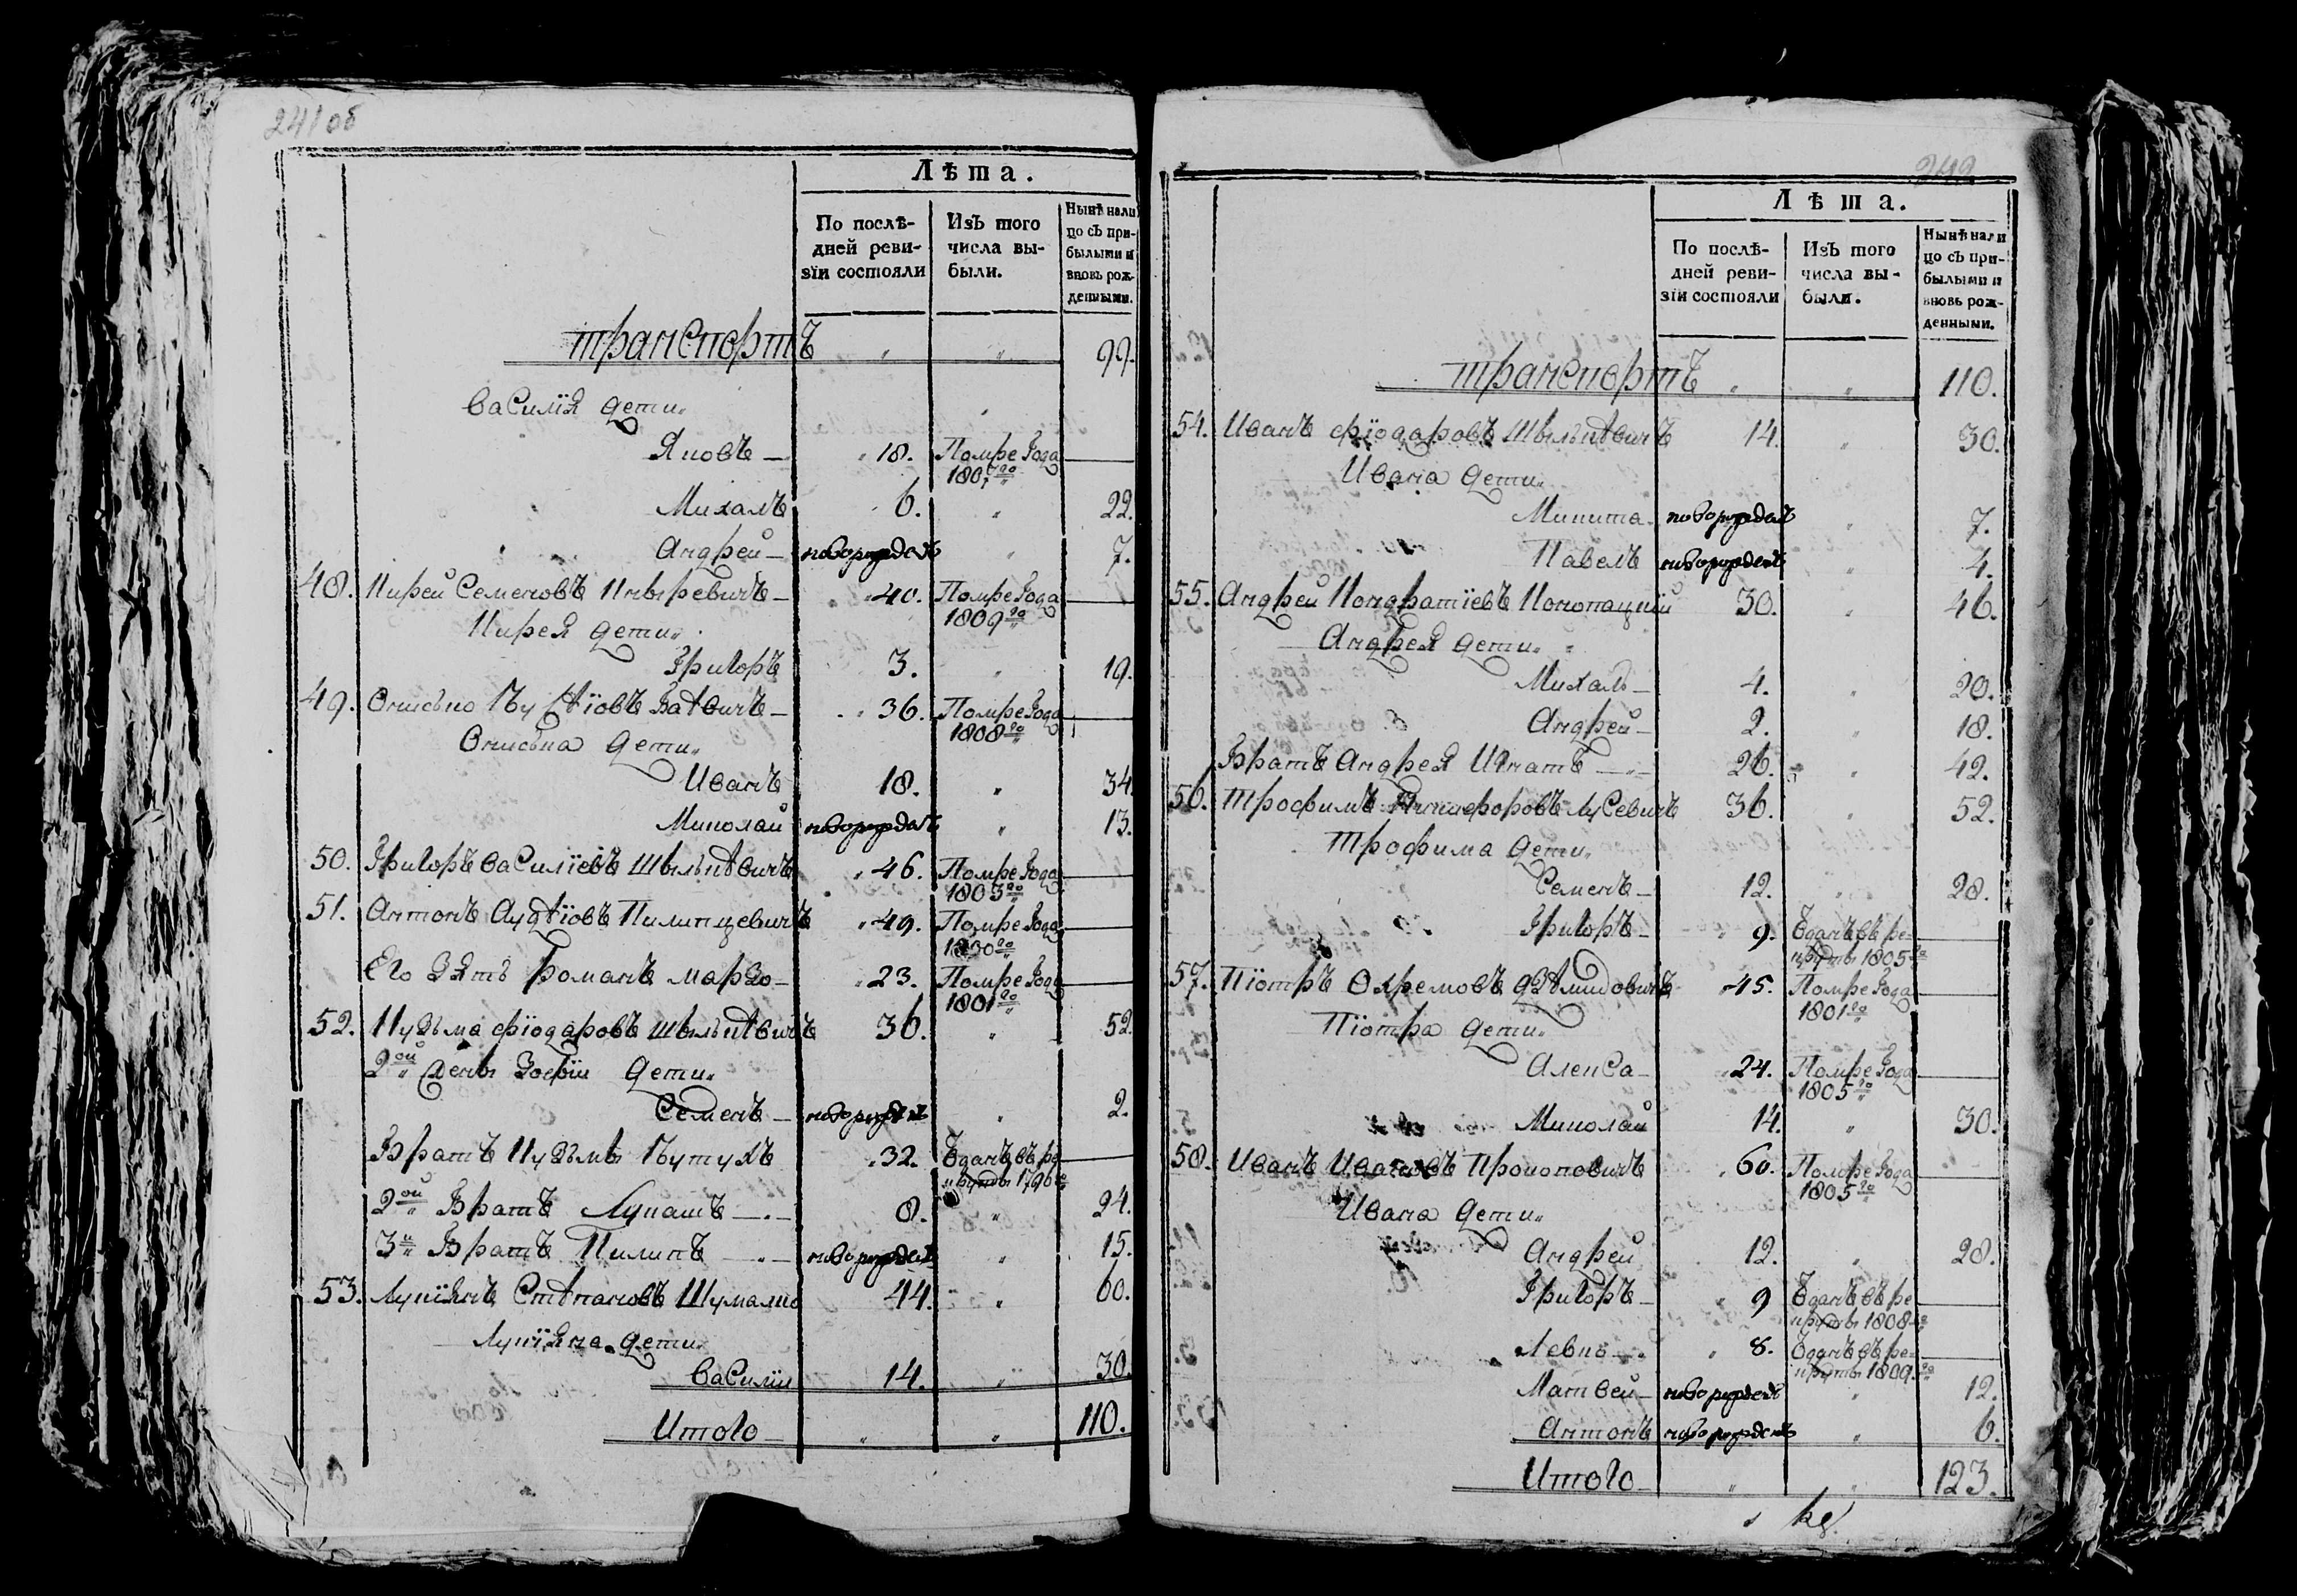 241 об
Лѣта.
По послѣ-
дней реви-
зіи состояли
Изъ того
числа вы-
были.
Нынѣ нали
цо съ при-
былыми и
вновь рож-
денными.
транспортъ " " 99.
Василія дети
Яковъ — 18. Помре года —
1807го
Михалъ 6. " 22.
Андрей — новорожденъ " 7.
48. Кирей Семеновъ — 40. Помре года —
1809го
Кирея дети
Григоръ 3. " 19.
49. — 36. Помре года —
1808го
дети
Иванъ 18. " 34
Миколай новорожденъ " 13.
50. Григоръ Василіевъ 46. Помре года —
1803го
51. Антонъ Пилипцевичъ 49. Помре года —
го
Его зять Романъ — 23. Помре года —
1801го
52. Кузьма Фіодаровъ 36. " 52
2ой жены Зосѣіи дети
Семенъ — новорожденъ " 2.
Братъ Кузьмы 32. Ѿданъ въ ре —
круты 1796го
2ой Братъ Лукашъ — 8. " 24.
3й Братъ Пилипъ — новорожденъ " 15.
53. Лукіянъ Стѣпановъ 44. " 60.
Лукіяна дети
Василіи 14. " 30.
Итого — " " 110.
242
Лѣта.
По послѣ-
дней реви-
зіи состояли
Изъ того
числа вы-
были.
Нынѣ нали
цо съ при-
былыми и
вновь рож-
денными.
транспортъ " " 110.
54. Иванъ Фіодаровъ 14. " 30.
Ивана дети
Микита новорожденъ " 7.
Павелъ новорожденъ " 4.
55. Андрей Кондратіевъ Конопацкій 30. " 46.
Андрея дети
Михалъ — 4. " 20.
Андрей — 2. " 18.
Братъ Андрея Игнатъ — 26. " 42.
56. Трофимъ Лусевичъ 36. " 52.
Трофима дети
Семенъ — 12. " 28.
Григоръ — 9. Ѿданъ въ ре- —
круты 1805го
57. Піотръ Охремовъ 45. Помре года —
1801го
Піотра дети
Алекса — 24. Помре года —
1805го
Миколай 14. " 30.
58. Иванъ Ивановъ Прокоповичъ 60. Помре года —
1805го
Ивана дети
Андрей 12. " 28.
Григоръ — 9 Ѿданъ въ ре —
круты 1808го
Левко — 8. Ѿданъ въ ре- —
круты 1809го
Матвей — новорожденъ " 12.
Антонъ новорожденъ " 6.
Итого — " " 123.